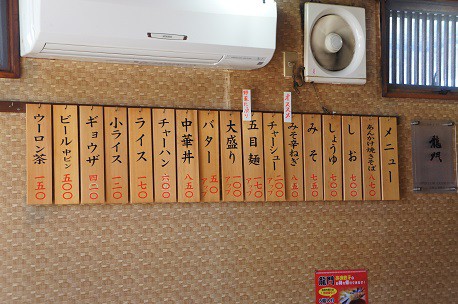 メニュー
あんかけ焼きそば 八七〇
しお 七〇〇
しょうゆ 七〇〇
みそ 七〇〇
みそ辛ねぎ 八五〇
チャーシュー
五目麺
大盛り
バター
中華丼 八五〇
チャーハン 六〇〇
ライス 一七〇
小ライス 一二〇
ギョウザ 四二〇
ビール中ビン 五〇〇
ウーロン茶 一五〇
龍門
龍門